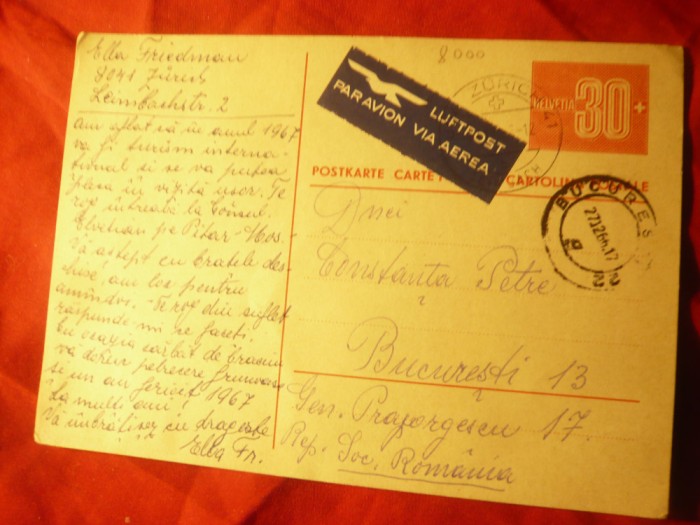 Ella Friedman
8041 Zürich
Leimbachstr. 2
am aflat că în anul 1967
va fi turism interna-
țional și se va putea
în vizită ușor. Te
rog întreabă la Consul.
Elvețian pe Pitar-Mos.-
Vă aștept cu brațele des-
chise, am loc pentru
amîndoi. - Te rog din suflet
răspunde-mi ce faceți.
Cu ocazia sărbăt. de Crăciun
va doresc petrecere frumoasă
și un an fericit 1967
La mulți ani!
Vă îmbrățișez cu dragoste
Ella Fr.
8000
LUFTPOST
PAR AVION VIA AEREA
ZÜRICH 41
HELVETIA 30+
POSTKARTE CARTE CARTOLINA
BUCURES
27.12.66.17
Dnei
Constanța Petre
București 13
Gen. Praporgescu 17.
Rep. Soc. România